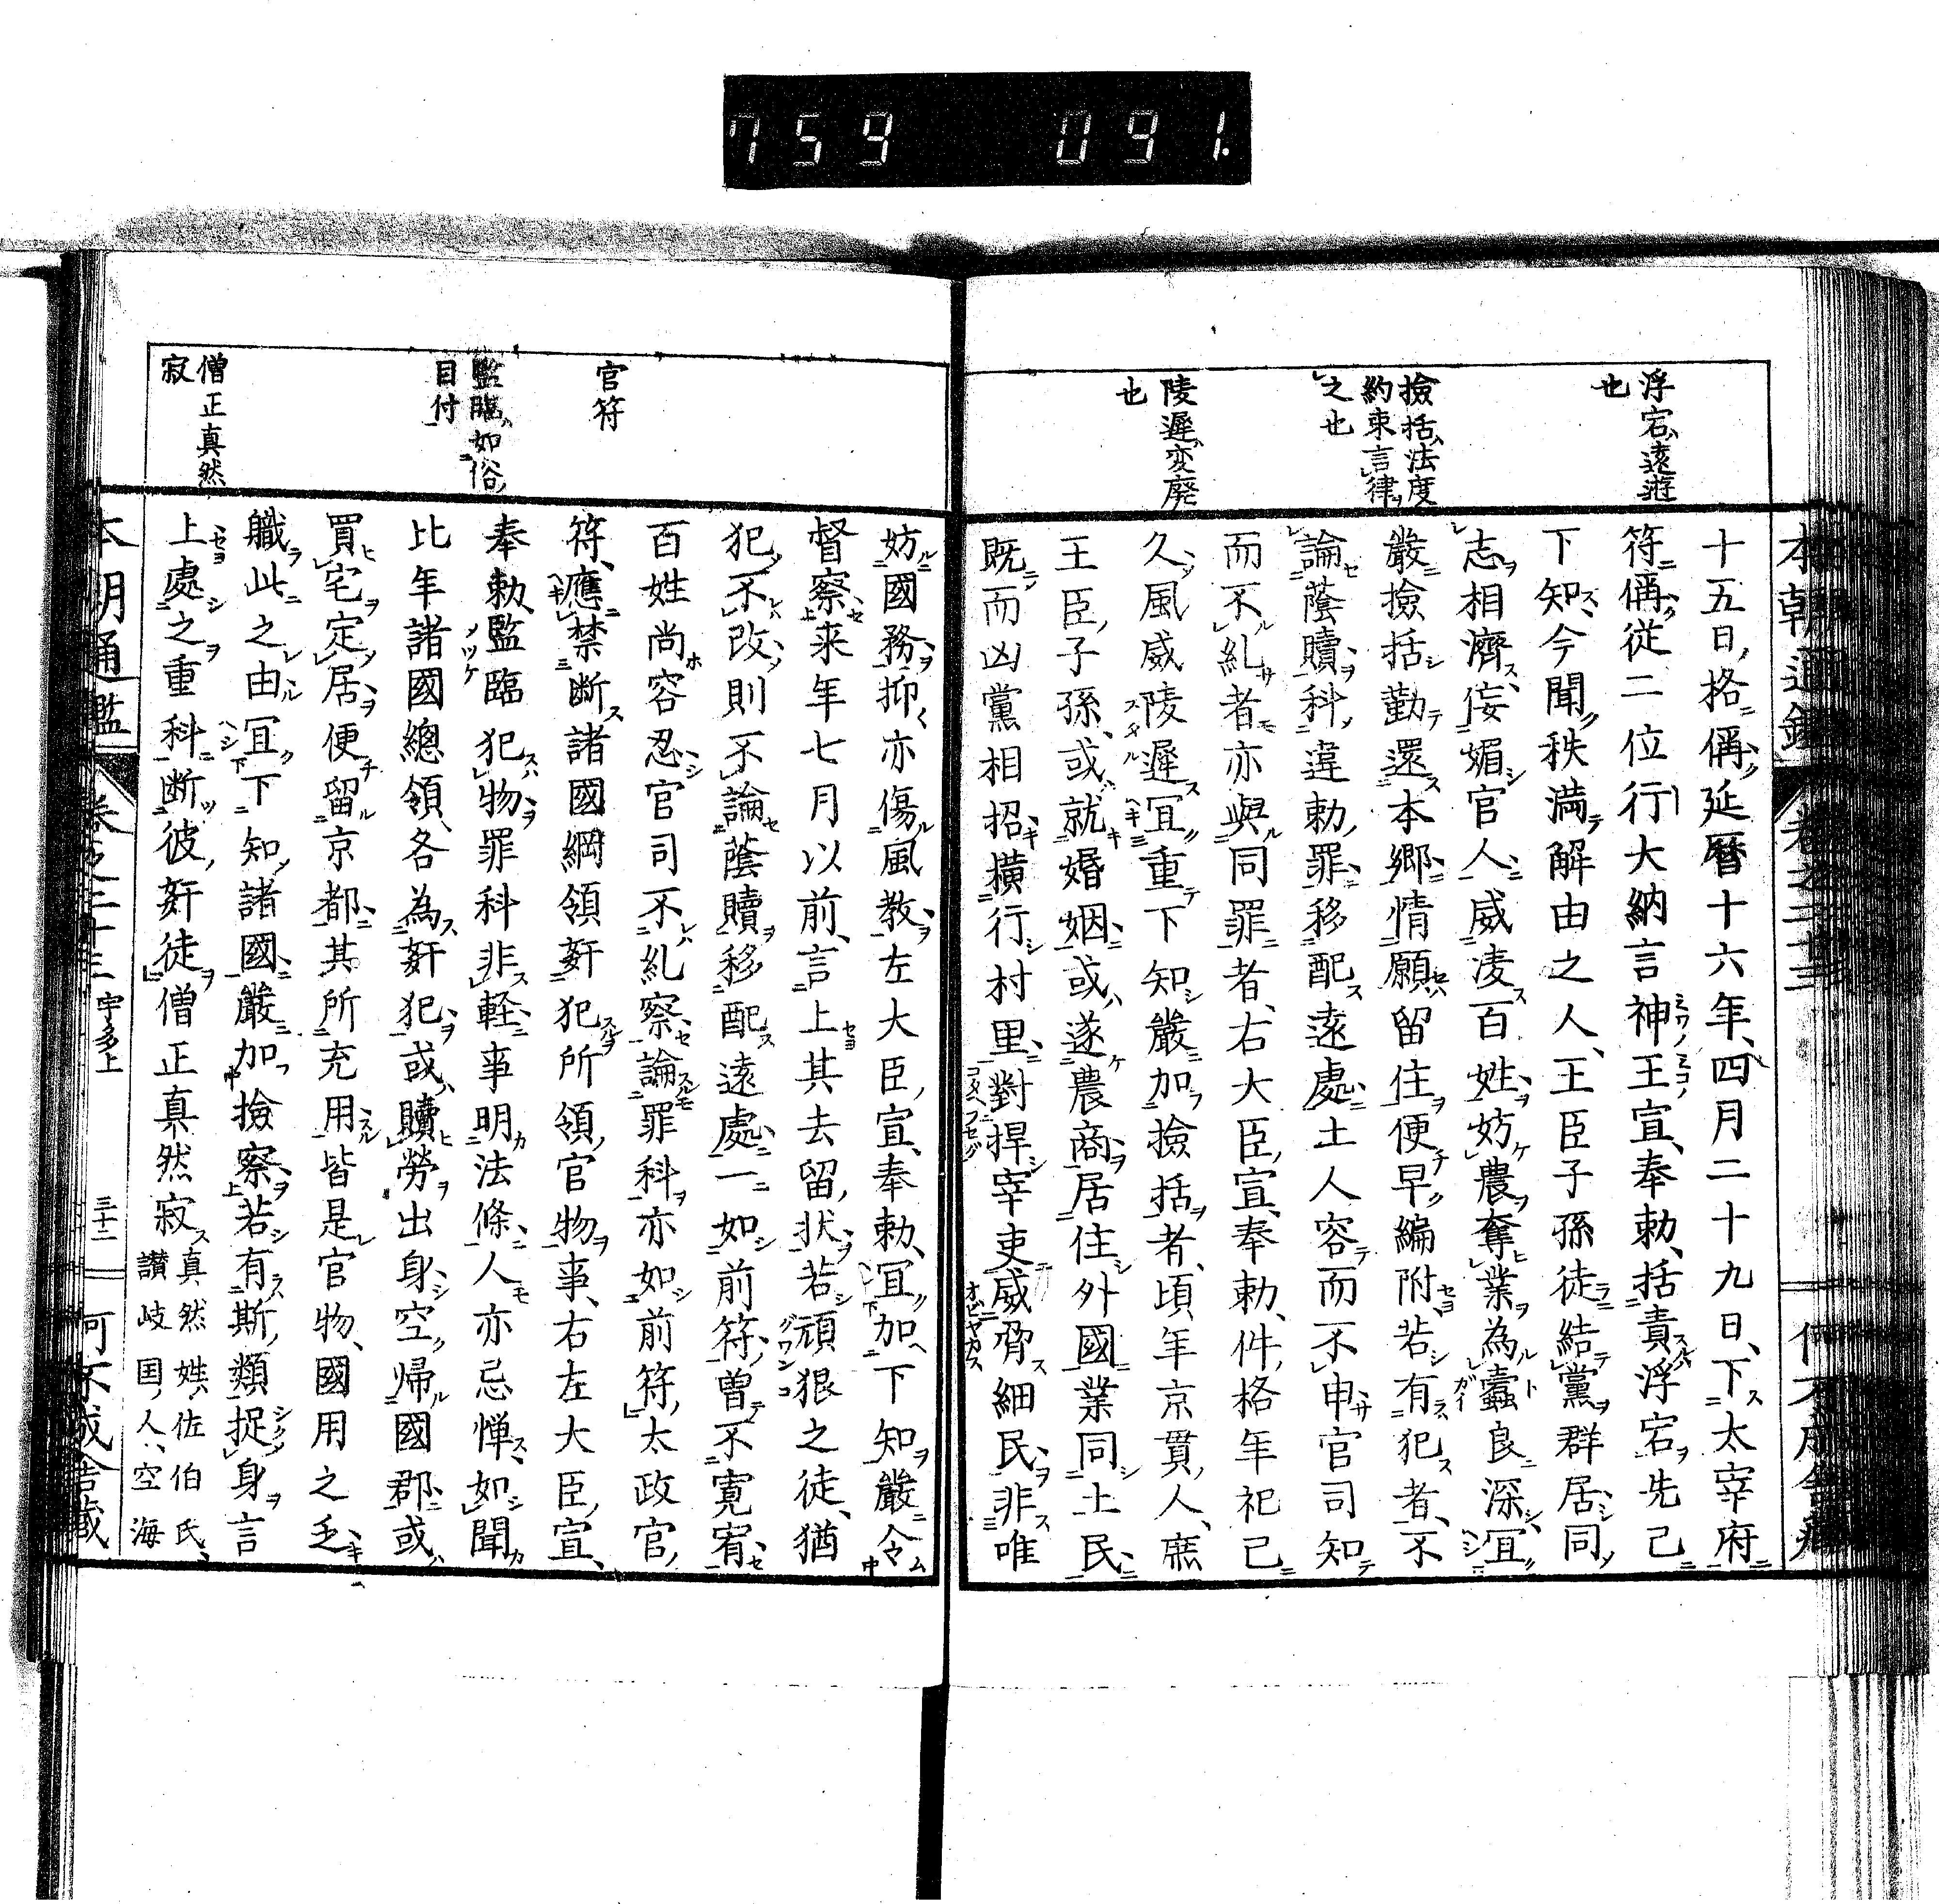 759 091.
浮宕ハ遠遊
也
撿括ハ法度
約束言律
之也
陵遲ハ変廃
也
十五日格偁延暦十六年四月二十九日下太宰府
符偁従二位行大納言神王宣奉勅括責浮宕先已
下知今聞秩満解由之人王臣子孫徒結黨群居同
志相濟侫媚官人威凌百姓妨農奪業為蠹良深冝
嚴撿括勤還本郷情願留住便早編附若有犯者不
論蔭贖科違勅罪移配遠處土人容而不申官司知
而不糺者亦與同罪者右大臣宣奉勅件格年祀已
久風威陵遲冝重下知嚴加撿括者頃年京貫人庶
王臣子孫或就婚姻或遂農商居住外國業同土民
既而凶黨相招横行村里對捍宰吏威脅細民非唯
官符
監臨ハ如俗
目付
僧正真然
寂
妨國務抑亦傷風教左大臣宣奉勅冝加下知嚴令
督察来年七月以前言上其去留状若頑狠之徒猶
犯不改則不論蔭贖移配遠處一如前符曽不寛宥
百姓尚容忍官司不糺察論罪科亦如前符太政官
符應禁断諸國綱領姧犯所領官物事右左大臣宣
奉勅監臨犯物罪科非軽事明法條人亦忌惮如聞
比年諸國總領各為姧犯或贖勞出身空帰國郡或
買宅定居便留京都其所充用皆是官物國用之乏
職此之由冝下知諸國嚴加撿察若有斯類捉身言
上處之重科断彼姧徒僧正真然寂
真然姓ハ佐伯氏
讃岐国人空海
本朝通鑑 卷之二十三 宇多上 三十二